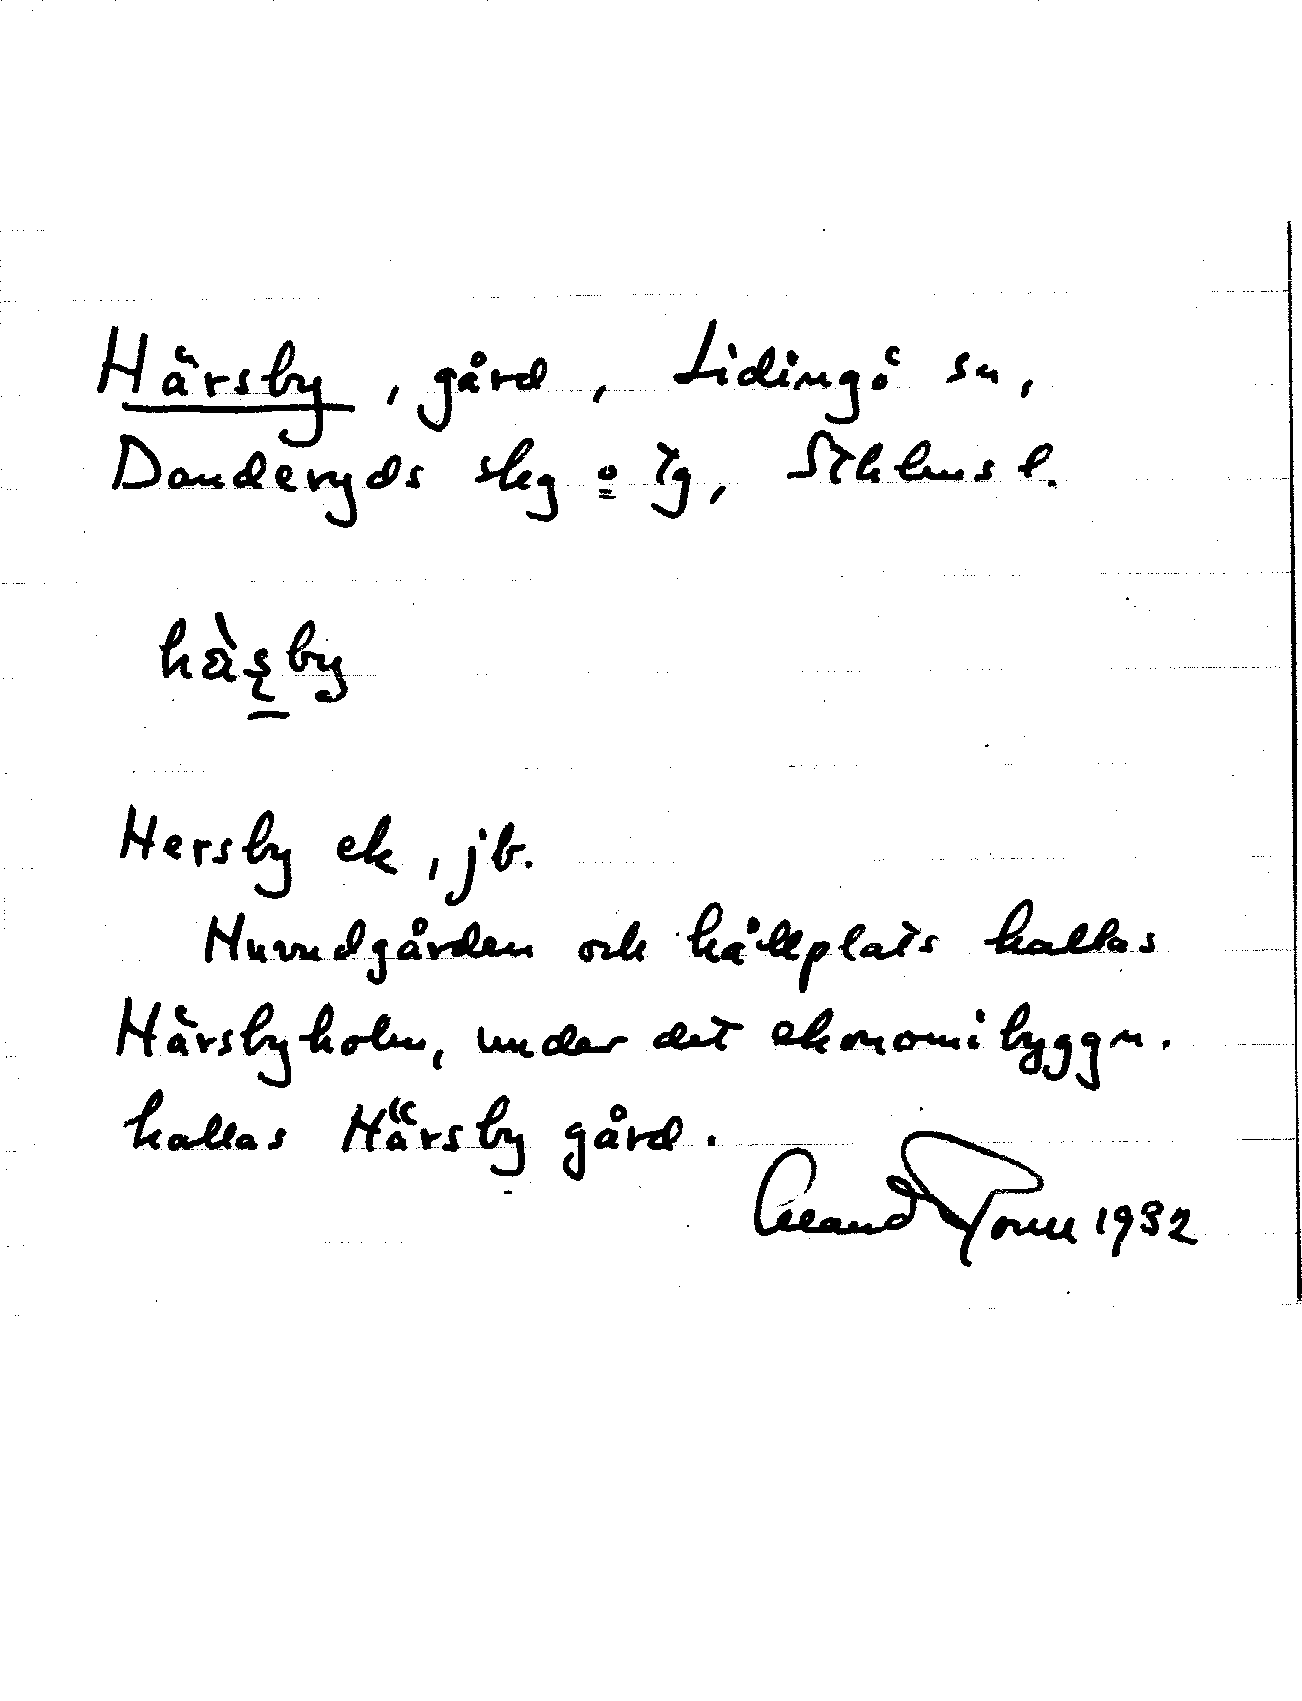 Härsby, gård, Lidingö sn,
Danderyds skg o tg, Sthlms l.
hàʂby
Hersby ek, jb.
Huvudgården och hållplats kallas
Härsbyholm, under det ekonomibyggn.
kallas Härsby gård.
1932